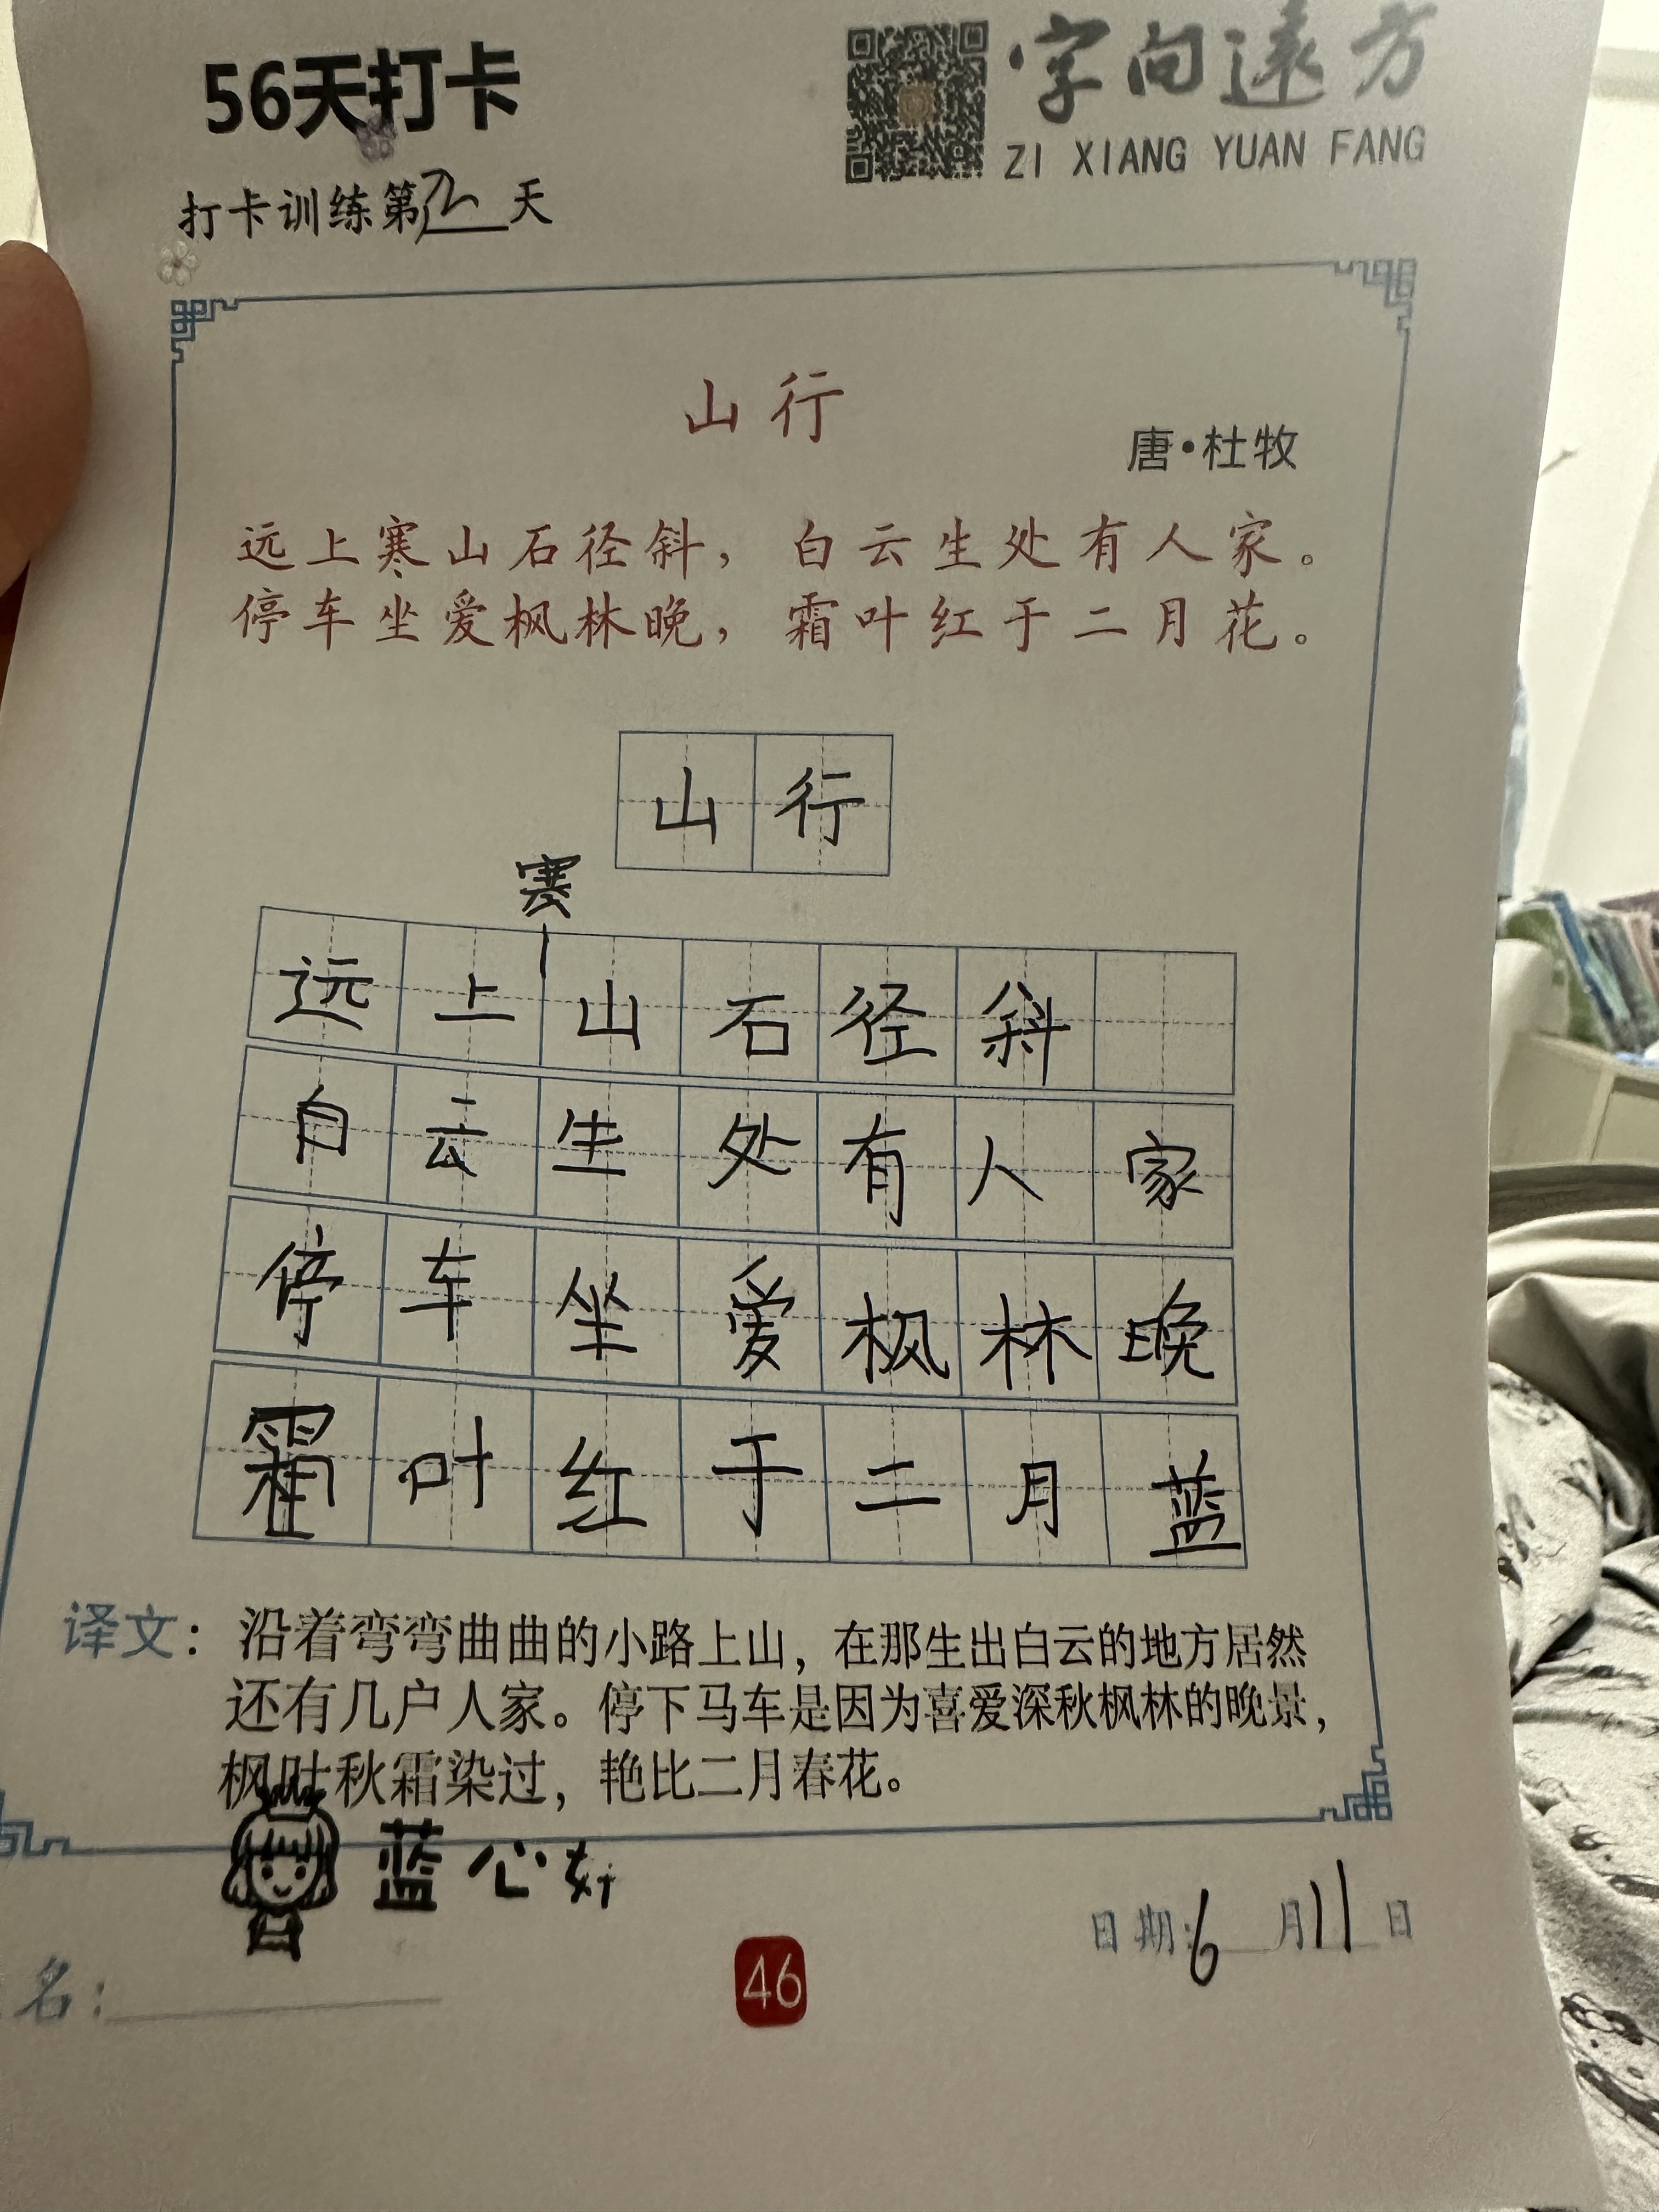 56天打卡
字向遠方
ZI XIANG YUAN FANG
打卡训练第 天
山行
唐·杜牧
远上寒山石径斜，白云生处有人家。
停车坐爱枫林晚，霜叶红于二月花。
山行
寒
远上山石径斜
自云生处有人家
停车坐爱枫林晚
霜叶红于二月蓝
译文：沿着弯弯曲曲的小路上山，在那生出白云的地方居然
还有几户人家。停下马车是因为喜爱深秋枫林的晚景，
枫叶秋霜染过，艳比二月春花。
蓝心
日期：6月11日
名：
46